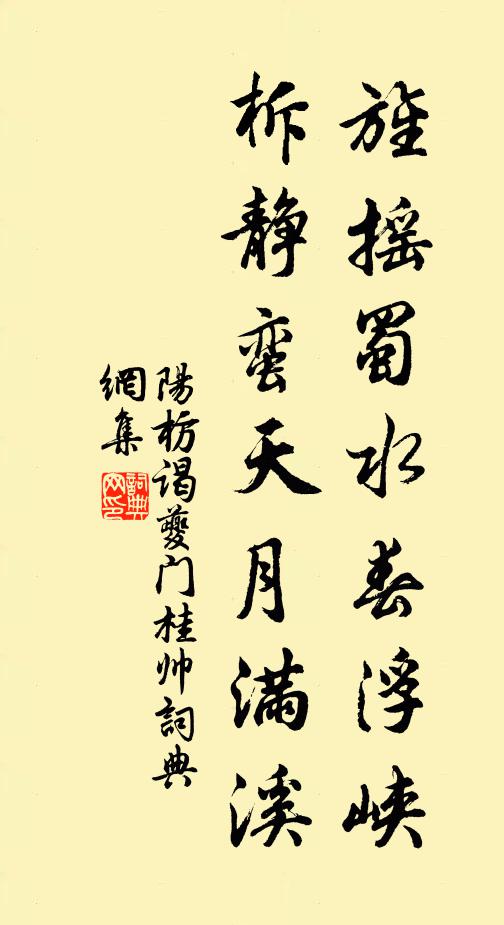 旌摇蜀水春浮峡
柝静蛮天月满溪
陽枋谒夔门桂帅詞典
網集
詞典
网印